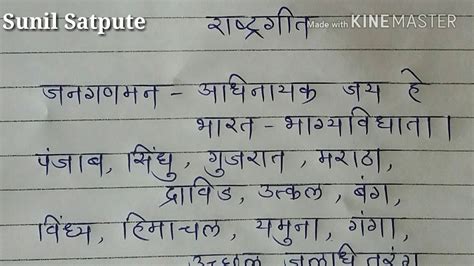 Sunil Satpute
Made with KINEMASTER
राष्ट्रगीत
जनगणमन - अधिनायक जय हे
भारत - भाग्यविधाता ।
पंजाब, सिंधु, गुजरात, मराठा,
द्राविड, उत्कल, बंग,
विंध्य, हिमाचल, यमुना, गंगा,
उच्छल जलधितरंग